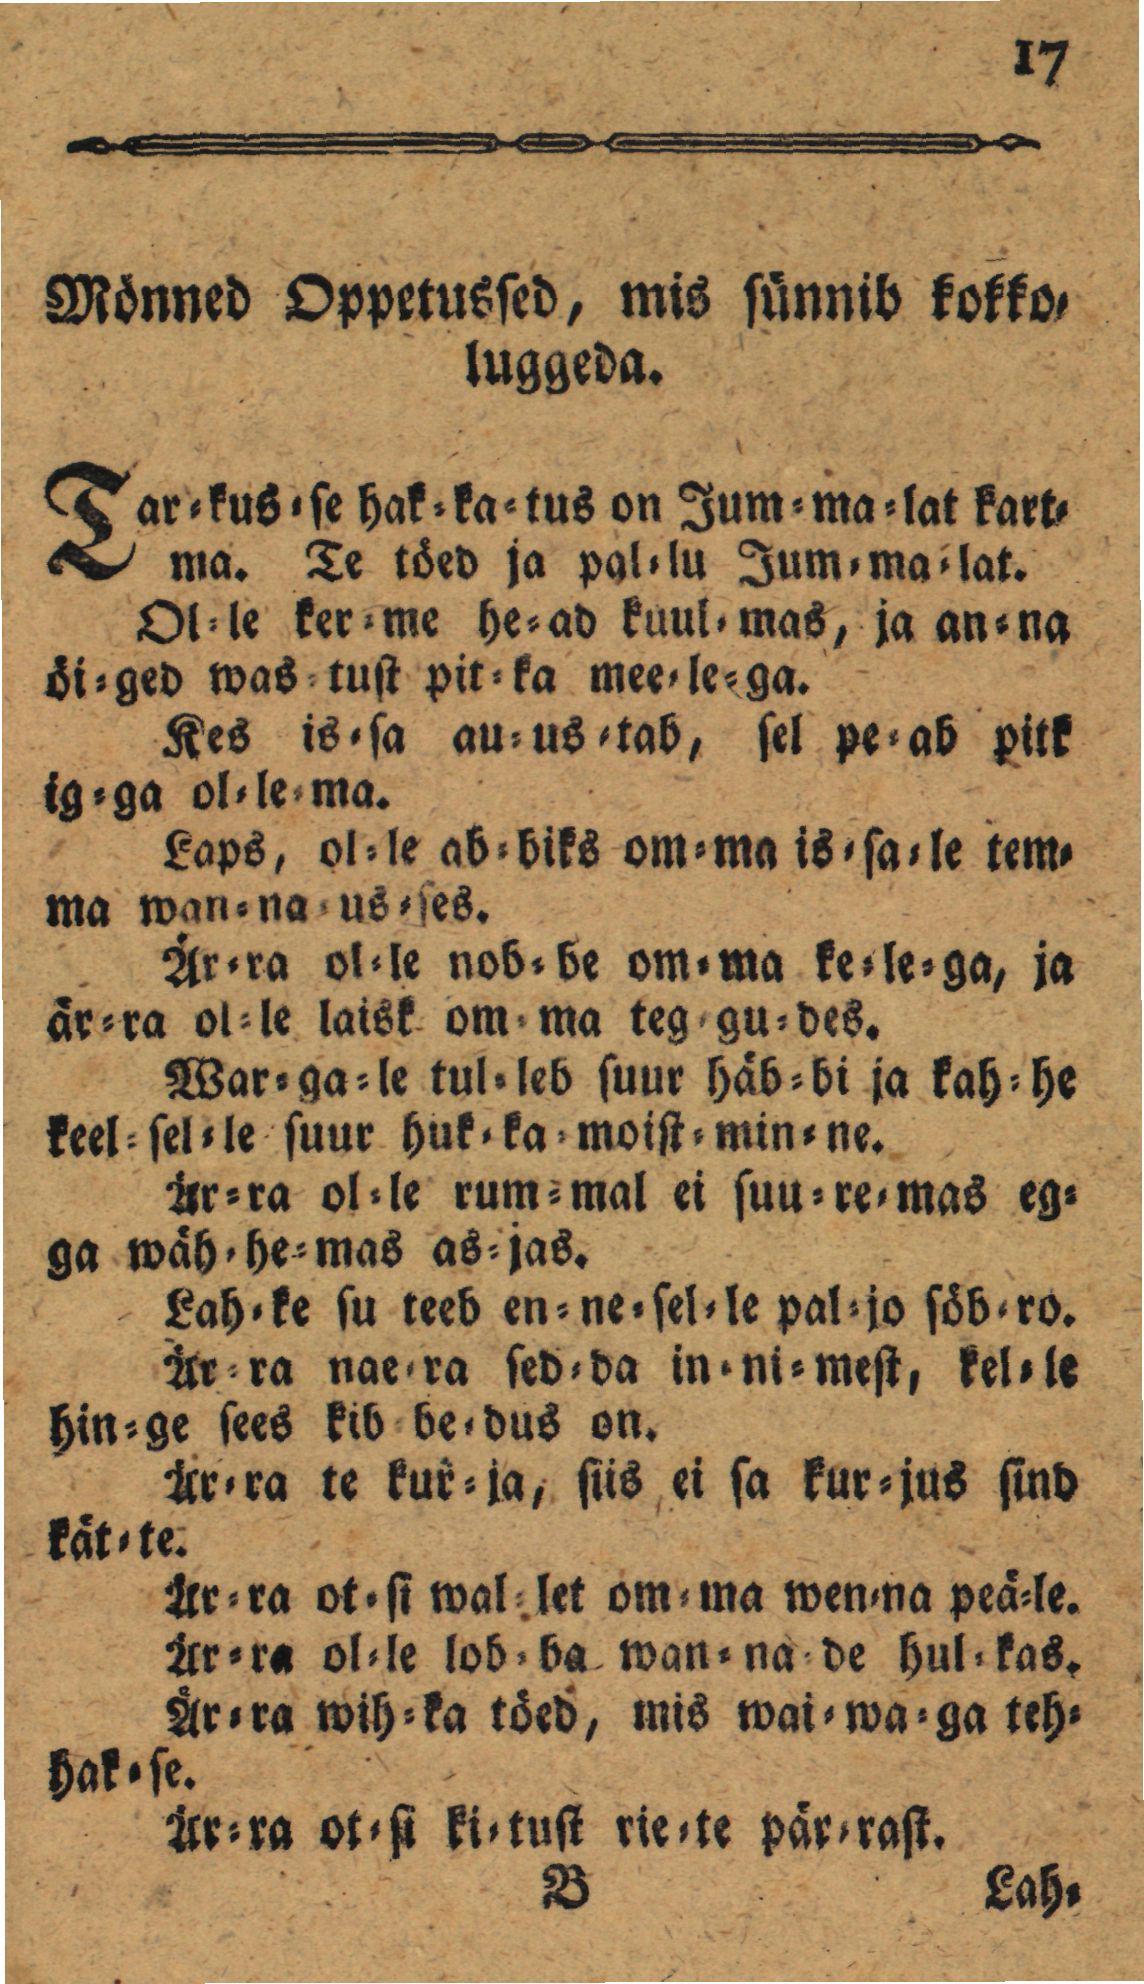 17
Mönned Oppetussed, mis sünnib kokko-
luggeda.
Tar-kus-se hak-ka-tus on Jum-ma-lat kart-
ma. Te töed ja pal-lu Jum-ma-lat.
Ol-le ker-me he-ad kuul-mas, ja an-na
öi-ged was-tust pit-ka mee-le-ga.
Kes is-sa au-us-tab, sel pe-ab pitk
ig-ga ol-le-ma.
Laps, ol-le ab-biks om-ma is-sa-le tem-
ma wan-na-us-ses.
Är-ra ol-le nob-be om-ma ke-le-ga, ja
är-ra ol-le laisk om-ma teg-gu-des.
War-ga-le tul-leb suur häb-bi ja kah-he
keel-sel-le suur huk-ka-moist-min-ne.
Är-ra ol-le rum-mal ei suu-re-mas eg-
ga wäh-he-mas as-jas.
Lah-ke su teeb en-ne-sel-le pal-jo söb-ro.
Är-ra nae-ra sed-da in-ni-mest, kel-le
hin-ge sees kib-be-dus on.
Är-ra te kur-ja, siis ei sa kur-jus sind
kät-te.
Är-ra ot-si wal-let om-ma wen-na peä-le.
Är-ra ol-le lob-ba wan-na-de hul-kas.
Är-ra wih-ka töed, mis wai-wa-ga teh-
hak-se.
Är-ra ot-si ki-tust rie-te pär-rast.
B Lah-